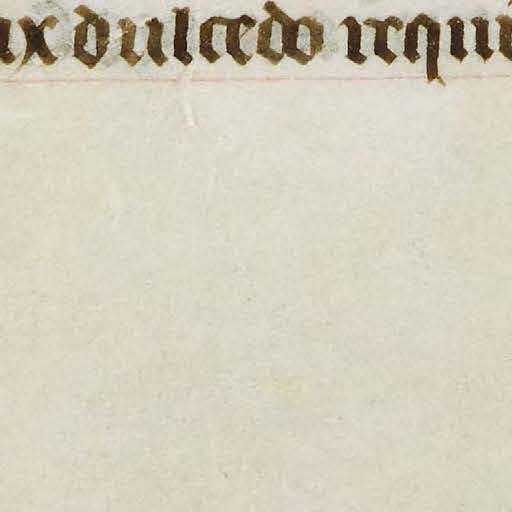 ax dulcedo requi